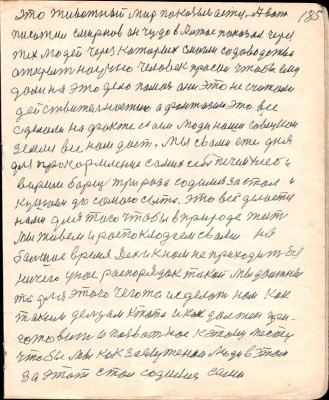 185
это животный мир показывает. А вот
писатели смирнов он чудо в Китае показал через
тех людей через которых смогли содоводства
открыт научно человек просил чтобы ему
дали на это дело помощь они это не считали
действительностию а фронтазии Это все
сделали на факте свои люди наши советской
земли все нам дает. Мы свами ете дня
для прокормление самих себя печем хлеб и
варим борщ три раза содимся за стол и
кушаем до самого сыта. Это всё делается
нами для того чтобы в природе жить
Мы живем и роспоклодгем свами на
большие время Дек и ном не приходит без
ничего у нас распорядок такой Мы должны
то для этого чегото и сделать нам как
таким делцам ктото и как должен при-
готовить и появатное к этому месту
чтобы Мы как заслужеными люди в этом
За этот стол содимся сами